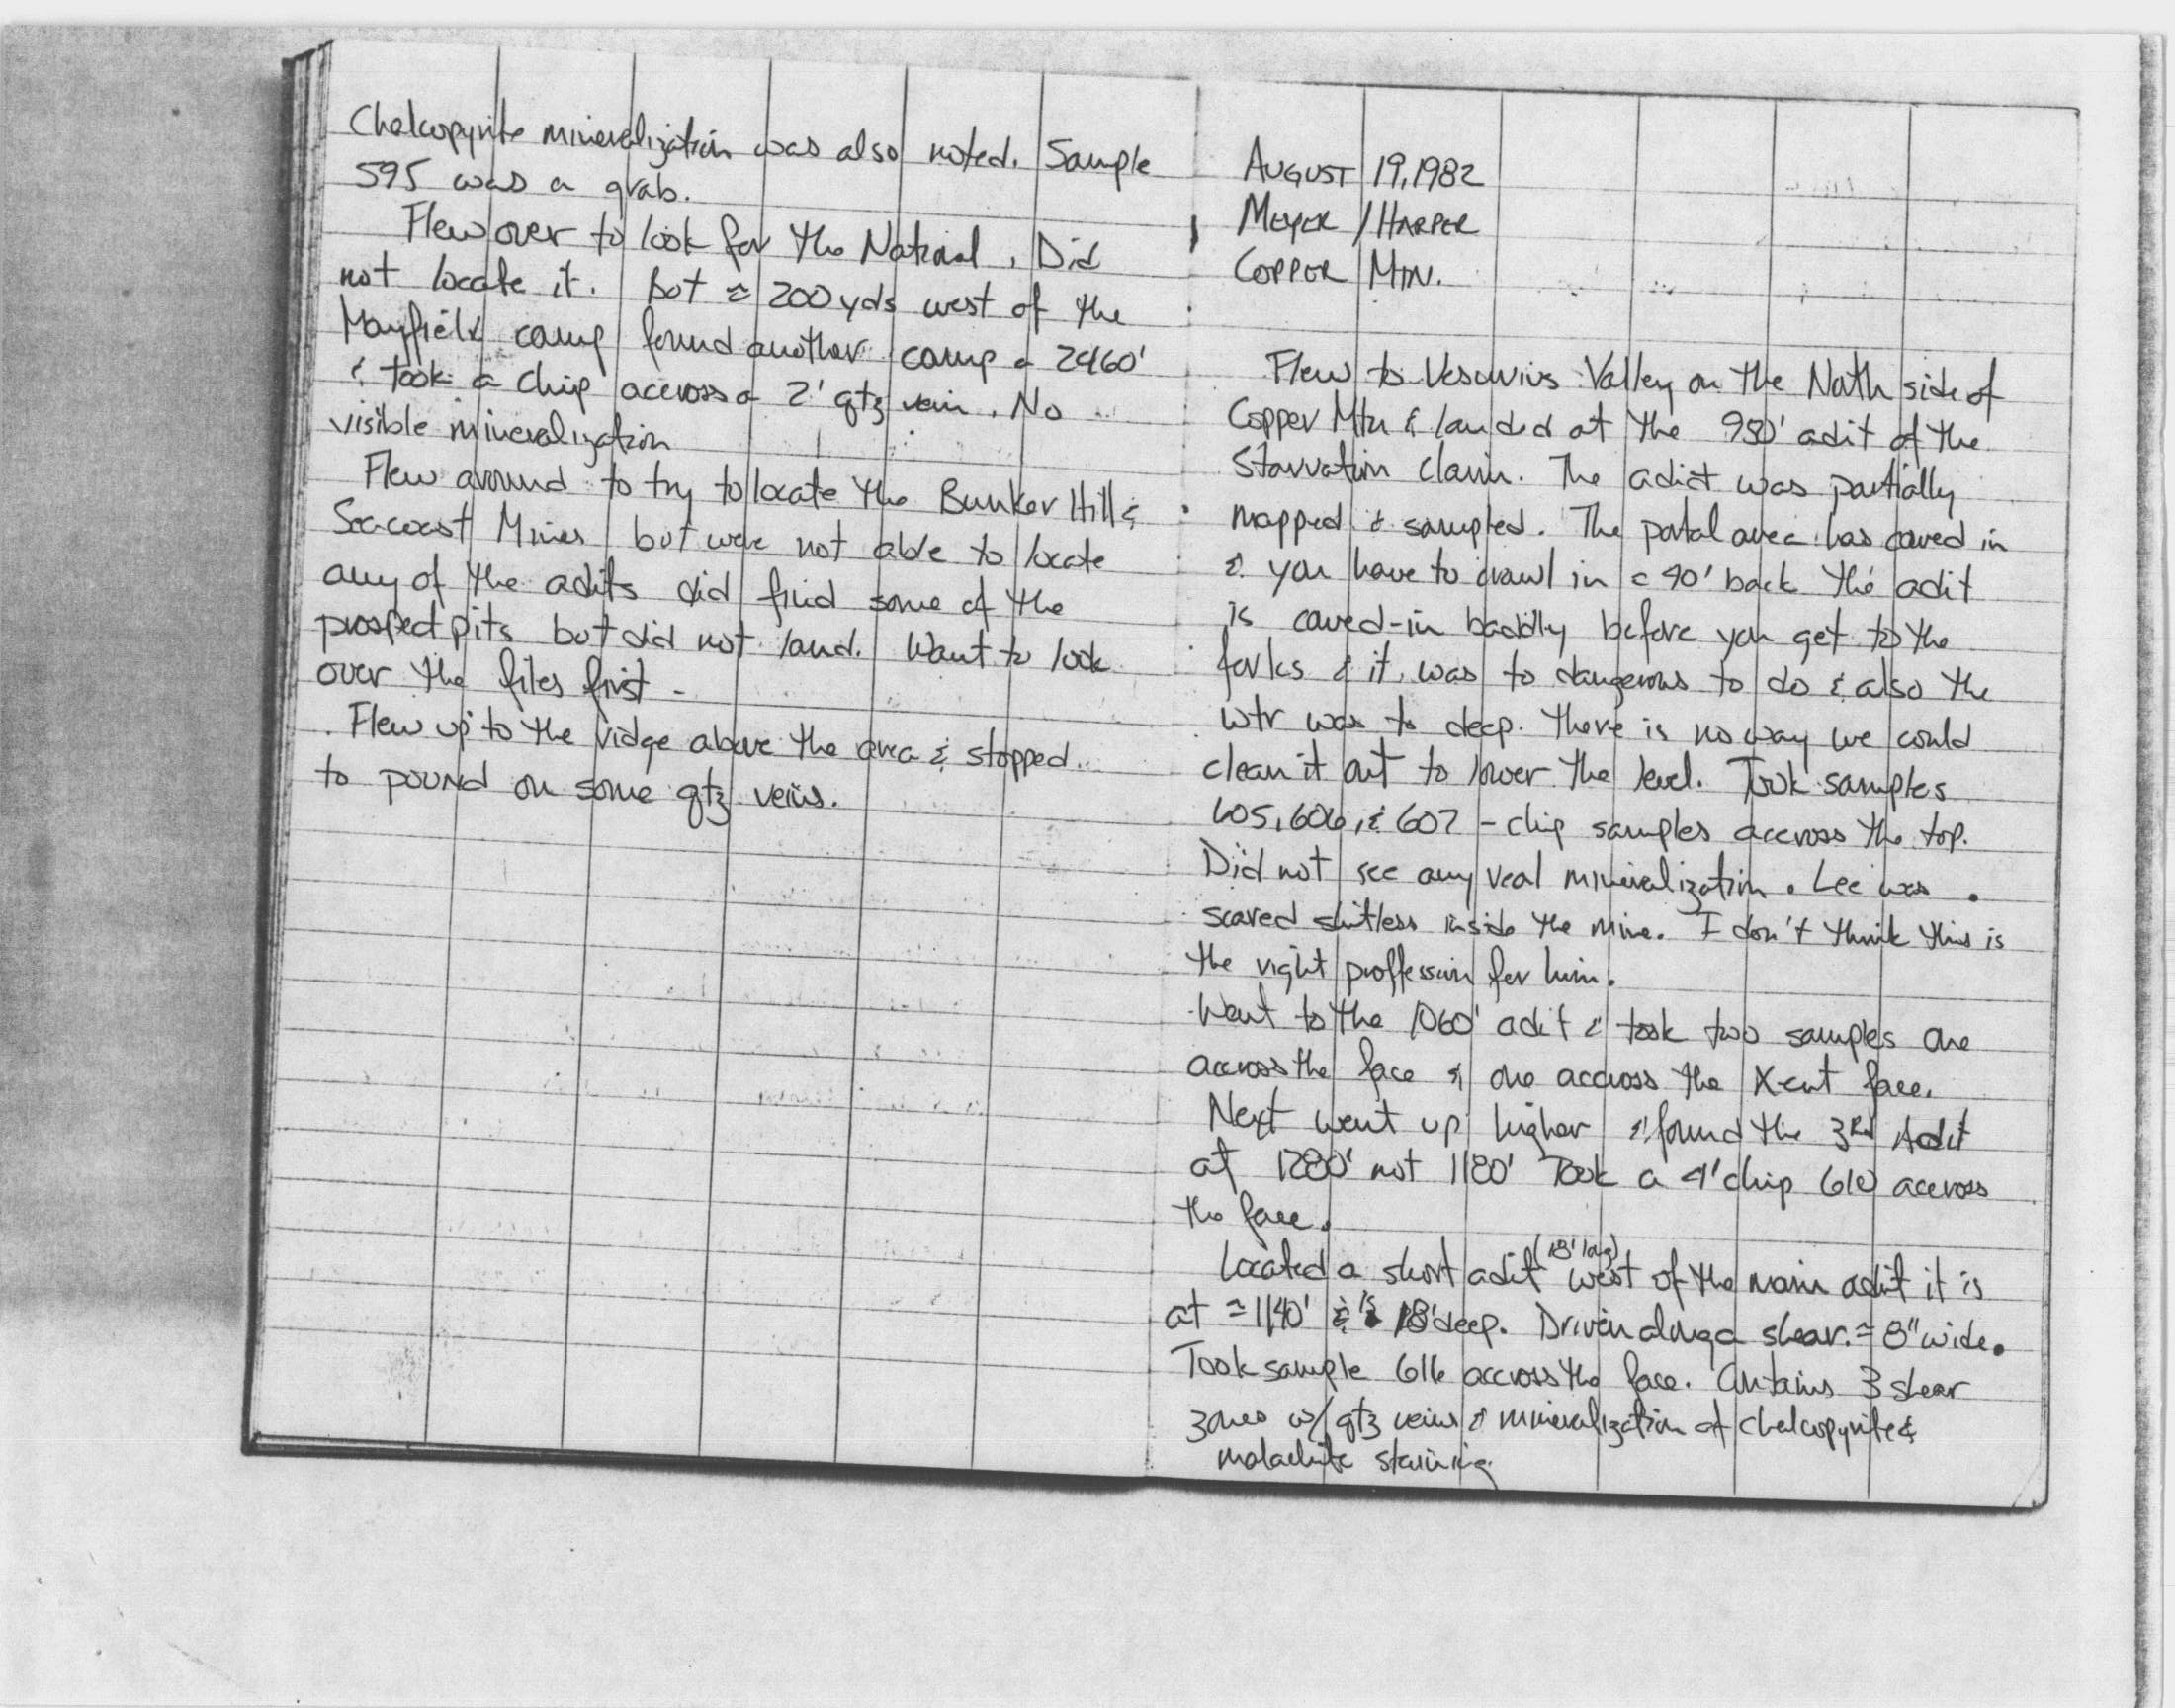 Chalcopyrite mineralization was also noted. Sample
595 was a grab.
Flew over to look for the National. Did
not locate it. But ≈ 200 yds west of the
Mayfield camp found another camp @ 2460'
& took a chip accross a 2' qtz vein. No
visible mineralization
Flew around to try to locate the Bunker Hill &
Seacoast Mines but were not able to locate
any of the adits did find some of the
prospect pits but did not land. Want to look
over the files first -
Flew up to the ridge above the area & stopped
to pound on some qtz veins.
AUGUST 19, 1982
MEYER / HARPER
COPPER MTN.
Flew to Vesuvius Valley on the North side of
Copper Mtn & landed at the 950' adit of the
Starvation Claim. The adict was partially
mapped & sampled. The portal area has caved in
& you have to crawl in @ 40' back the adit
is caved-in baddly before you get to the
forks & it was to dangerous to do & also the
wtr was to deep. There is no way we could
clean it out to lower the level. Took samples
605, 606, & 607 - chip samples accross the top.
Did not see any real mineralization. Lee was
scared shitless inside the mine. I don't think this is
the right proffession for him.
Went to the 1060' adit & took two samples one
accross the face & one accross the X-cut face.
Next went up higher & found the 3rd Adit
at 1280' not 1180' Took a 4' chip 610 accross
the face.
Located a short adit (18' long) west of the main adit it is
at ≈ 1140' & is 18' deep. Driven along a shear. ≈ 8" wide.
Took sample 616 accross the face. Contains 3 shear
zones w/ qtz veins & mineralization of chalcopyrite &
malachite staining